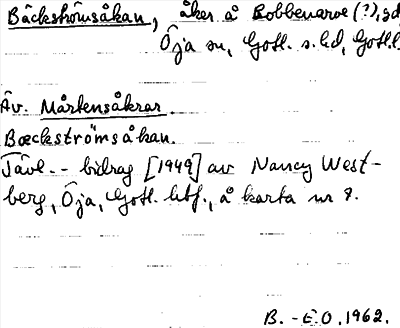 Bäckströmsåkan, åker å Bobbenarve (?), gd
Öja sn, Gotl. s. hd, Gotl.l
Äv. Mårtensåkrar.
Bœckströmsåkan.
Tävl.-- bidrag [1949] av Nancy West-
berg, Öja, Gotl. , å karta nr 8.
B. - E.O. 1962.